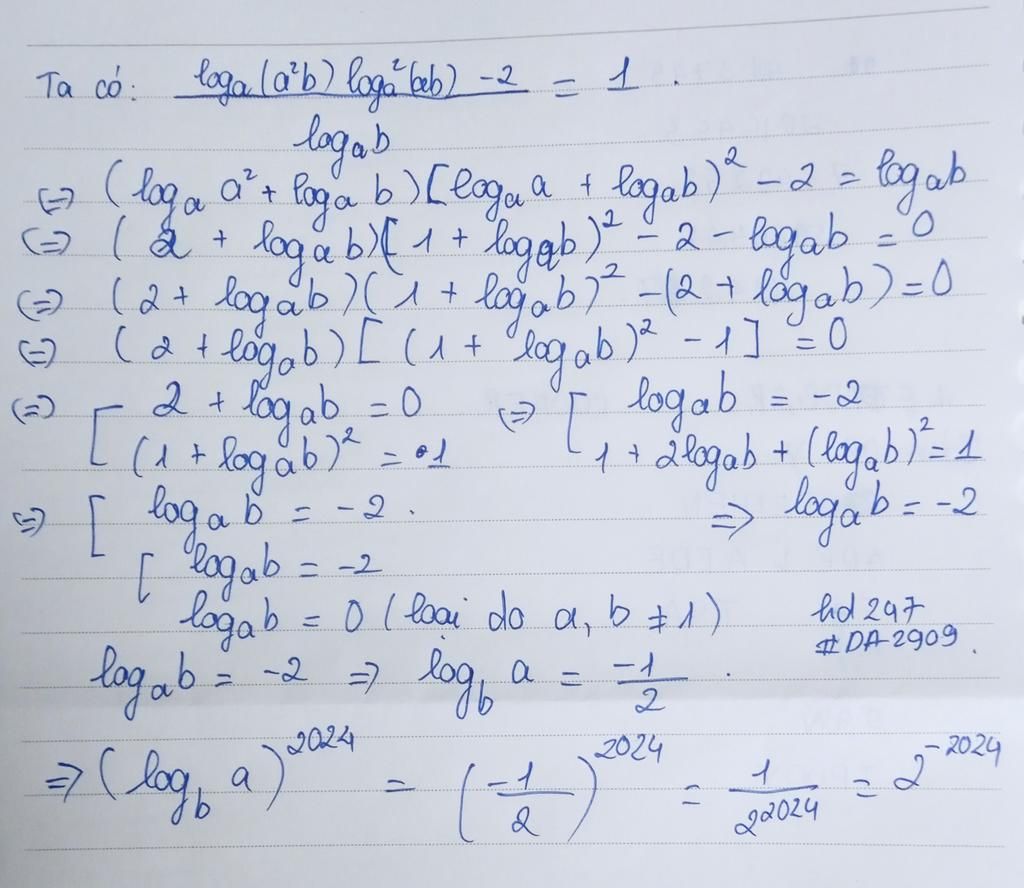 Ta có: logₐ(a²b) logₐ²(ab) - 2 = 1.
logₐb
(=) (logₐ a² + logₐ b)[logₐ a + logₐb)² - 2 = logₐb
(=) (2 + logₐ b)[1 + logₐb)² - 2 - logₐb = 0
(=) (2 + logₐb)(1 + logₐb)² - (2 + logₐb) = 0
(=) (2 + logₐb)[(1 + logₐb)² - 1] = 0
(=) [ 2 + logₐb = 0 (=) [ logₐb = -2
(1 + logₐb)² = 1 1 + 2logₐb + (logₐb)² = 1
=) [ logₐb = -2. => logₐb = -2
[ logₐb = -2
logₐb = 0 (loại do a, b ≠ 1) hd 247
#DA2909.
logₐb = -2 => log_b a = -1/2.
=> (log_b a)²⁰²⁴ = (-1/2)²⁰²⁴ = 1/2²⁰²⁴ = 2⁻²⁰²⁴